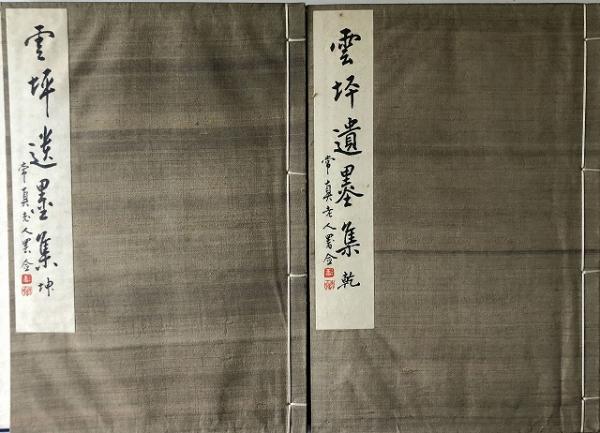 雲坪遺墨集 乾
常真老人署合
雲坪遺墨集 坤
常真老人署合